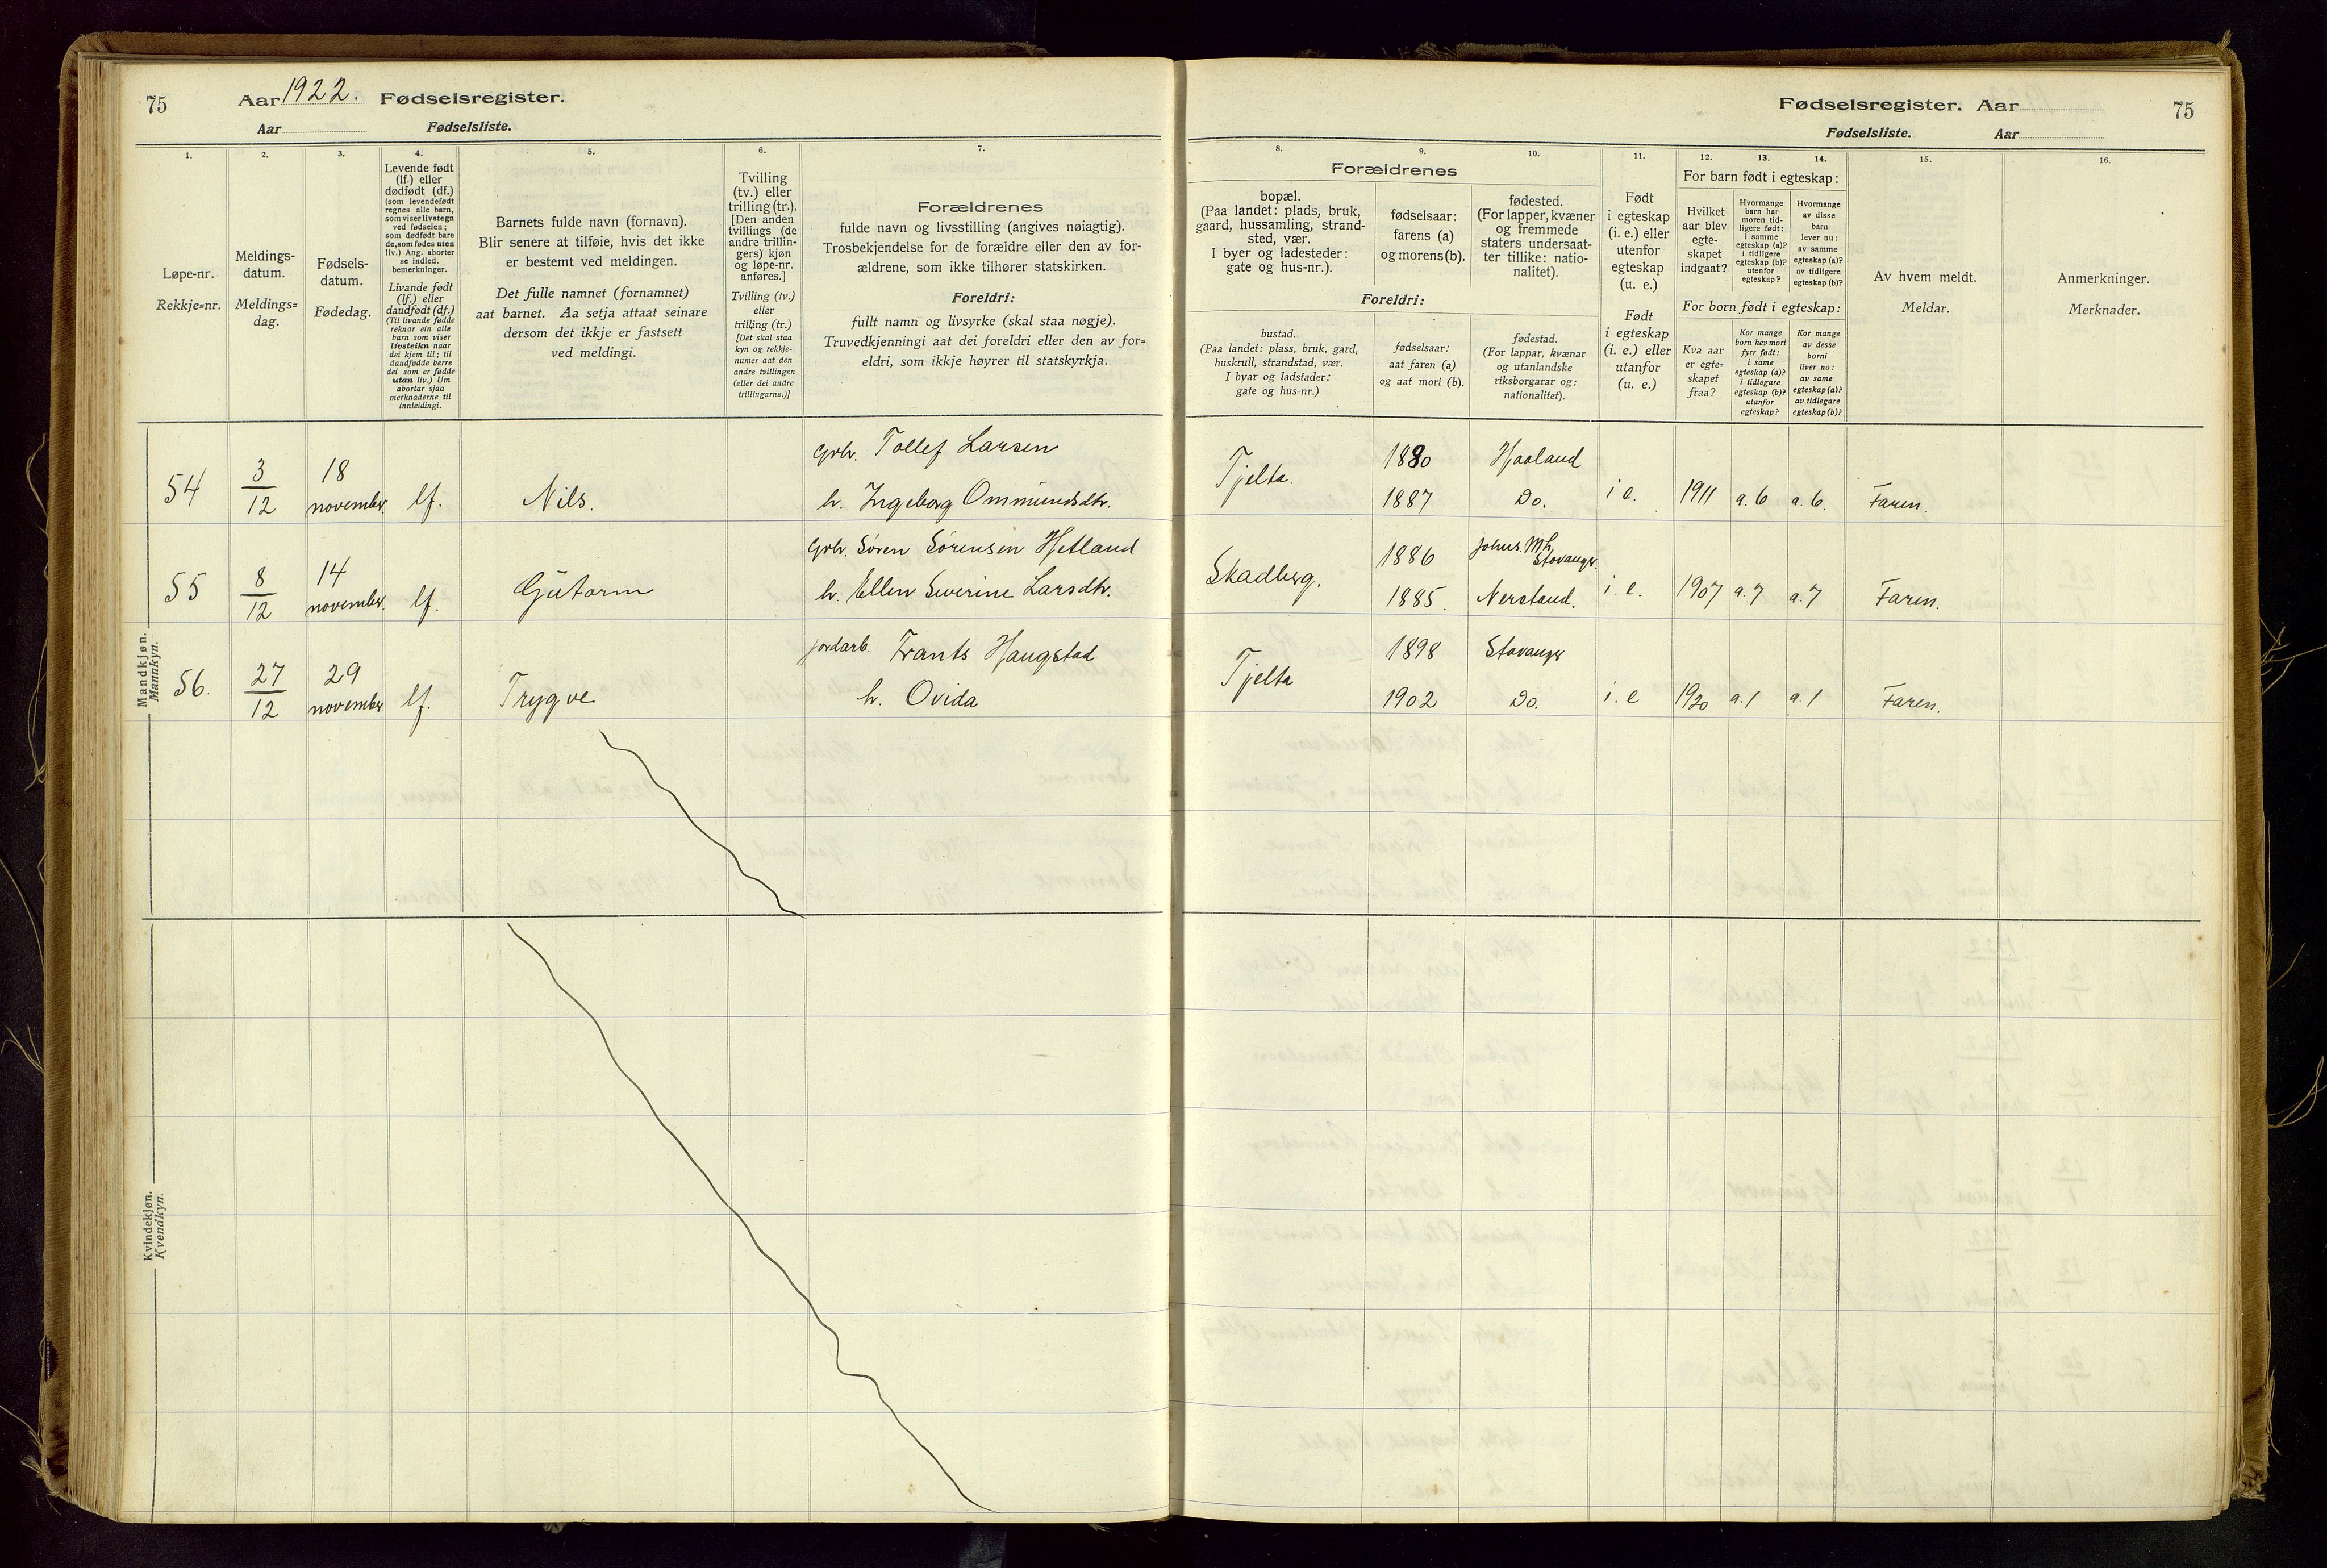 75
Aar 1922. Fødselsregister.
Aar Fødselsliste.
Fødselsregister. Aar
75
Fødselsliste. Aar
1.
Løpe-nr.
Rekkje=nr.
2.
Meldings-
datum.
Meldings=
dag.
3.
Fødsels-
datum.
Fødedag.
4.
Levende født
(lf.) eller
dødfødt (df.)
(som levendefødt
regnes alle barn,
som viser livstegn
ved fødselen;
som dødfødt bare
de, som fødes uten
liv.) Ang. aborter
se indled.
bemerkninger.
Livande født
(lf.) eller
daudfødt (df.)
(Til livande fødde
reknar ein alle
barn som viser
livsteikn naar
dei kjem til; til
daudfødde berre
dei som er fødde
utan liv.) Um
abortar sjaa
merknaderne til
innleidingi.
5.
Barnets fulde navn (fornavn).
Blir senere at tilføie, hvis det ikke
er bestemt ved meldingen.
Det fulle namnet (fornamnet)
aat barnet. Aa setja attaat seinare
dersom det ikkje er fastsett
ved meldingi.
6.
Tvilling
(tv.) eller
trilling (tr.).
[Den anden
tvillings (de
andre trillin-
gers) kjøn
og løpe-nr.
anføres.]
Tvilling (tv.)
eller
trilling (tr.)
[Det skal staa
kyn og rekkje-
numer aat den
andre tvillingen
(eller dei andre
trillingarne.)]
7.
Forældrenes
fulde navn og livsstilling (angives nøiagtig).
Trosbekjendelse for de forældre eller den av for-
ældrene, som ikke tilhører statskirken.
Foreldri:
fullt namn og livsyrke (skal staa nøgje).
Truvedkjenningi aat dei foreldri eller den av for=
eldri, som ikkje høyrer til statskyrkja.
Forældrenes
8.
bopæl.
(Paa landet: plads, bruk,
gaard, hussamling, strand-
sted, vær.
I byer og ladesteder:
gate og hus-nr.).
9.
fødselsaar:
farens (a)
og morens (b).
10.
fødested.
(For lapper, kvæner
og fremmede
staters undersaat-
ter tillike: natio-
nalitet).
Foreldri:
bustad.
(Paa landet: plass, bruk, gard,
huskrull, strandstad, vær.
I byar og ladstader:
gate og hus=nr.)
fødselsaar:
aat faren (a)
og aat mori (b).
fødestad.
(For lappar, kvænar
og utanlandske
riksborgarar og:
nationalitet).
11.
Født
i egteskap
(i. e.) eller
utenfor
egteskap
(u. e.)
Født
i egteskap
(i. e.) eller
utanfor
(u. e.)
For barn født i egteskap:
12.
Hvilket
aar blev
egte-
skapet
indgaat?
13.
Hvormange
barn har
moren tid-
ligere født:
i samme
egteskap (a)?
i tidligere
egteskap (b)?
utenfor
egteskap?
14.
Hvormange
av disse
barn
lever nu:
av samme
egteskap (a)?
av tidligere
egteskap (b)?
For born født i egteskap:
Kva aar
er egte=
skapet
fraa?
Kor mange
born hev mori
fyrr født:
i same
egteskap (a)?
i tidlegare
egteskap (b)?
utanfor
egteskap?
Kor mange
av desse
borni
liver no:
av same
egteskap (a)?
av tidlegare
egteskap (b)?
15.
Av hvem meldt.
Meldar.
16.
Anmerkninger.
Merknader.
Mandkjøn.
Mannkyn.
54 3/12 18 november. lf. Nils. Grbr. Tollef Larsen
h. Ingeborg Ommundsdtr.
Tjelta. 1880 Haaland
1887 Do. i e. 1911 a. 6 a. 6. Faren.
55 8/12 14 november. lf. Gutorm Grbr. Søren Sørensen Hetland
h. Ellen Severine Larsdtr.
Skadberg. 1886 Johns. Mh. Stavanger.
1885. Nerland. i. e. 1907 a. 7 a. 7 Faren.
56. 27/12 29 november lf. Trygve jordarb. Frants Haugstad
h. Ovida
Tjelta 1898 Stavanger
1902 Do. i. e 1920 a. 1 a. 1 Faren.
Kvindekjøn.
Kvendkyn.